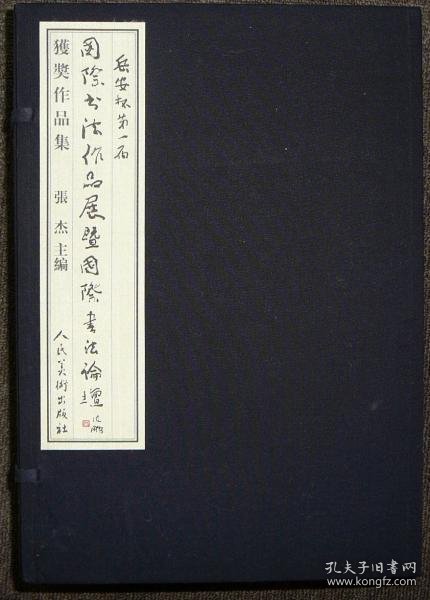 岳安杯第一届
国际书法作品展暨国际书法论坛
沈鹏
獲奬作品集 張杰主编
人民美術出版社
孔夫子旧书网
www.kongfz.com